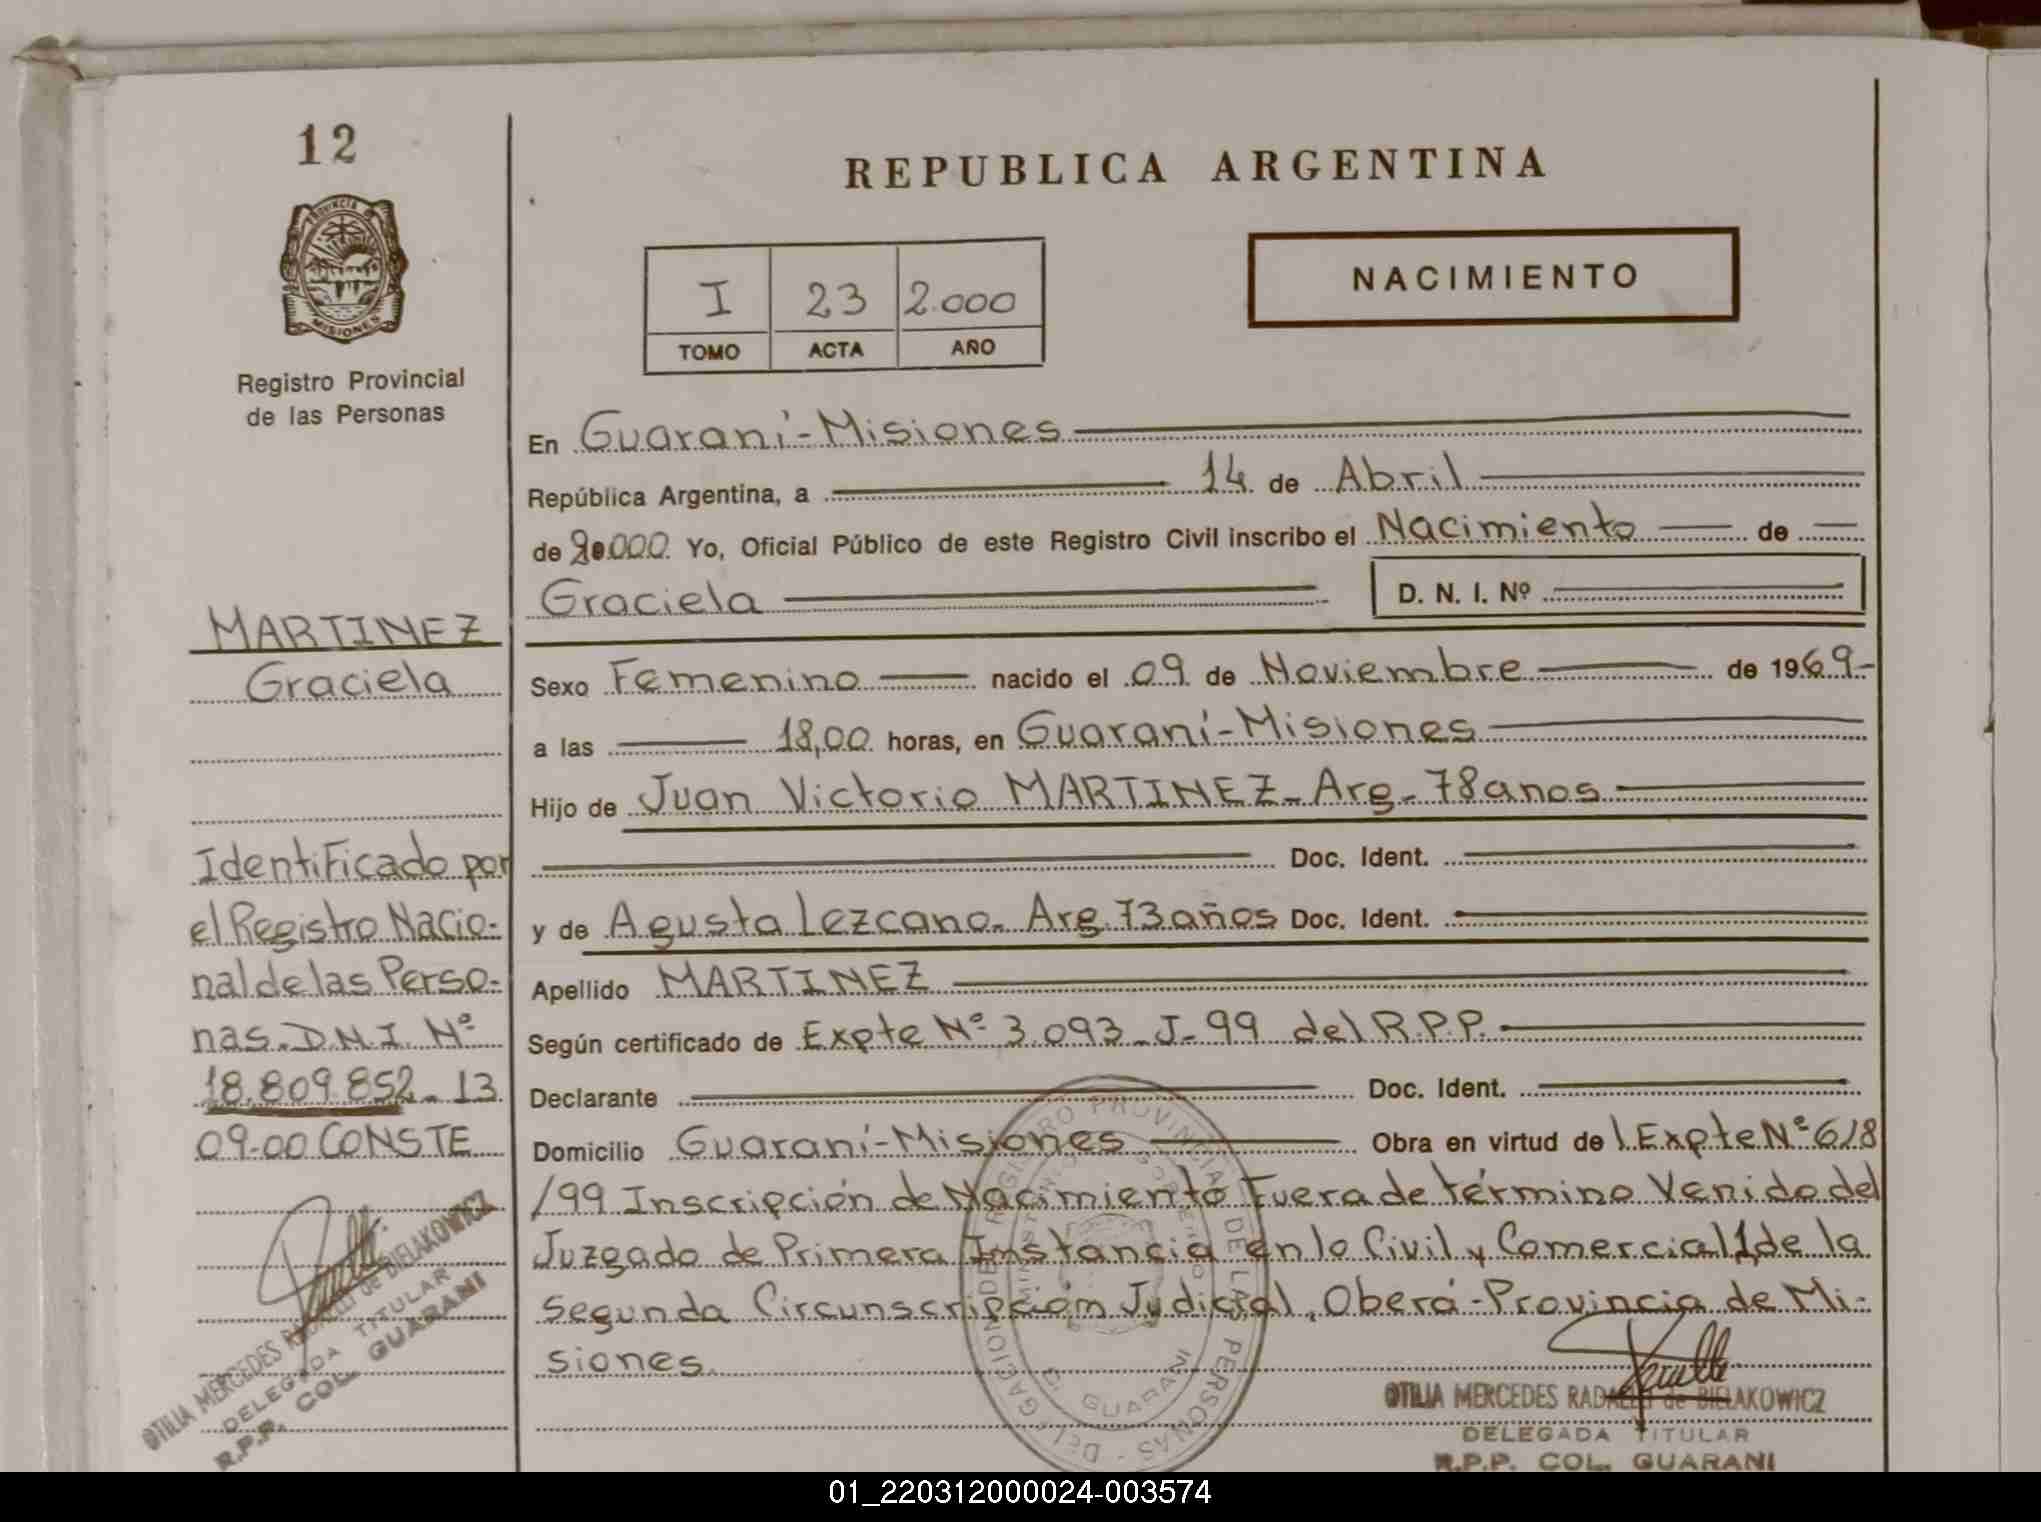 12
PROVINCIA D
MISIONES
Registro Provincial
de las Personas
REPUBLICA ARGENTINA
I 23 2.000
TOMO ACTA AÑO
NACIMIENTO
En Guaraní-Misiones
República Argentina, a 14 de Abril
de 2.000. Yo, Oficial Público de este Registro Civil inscribo el Nacimiento de
Graciela D. N. I. Nº
MARTINEZ
Graciela
Sexo Femenino nacido el 09 de Noviembre de 1969-
a las 18,00 horas, en Guaraní-Misiones
Hijo de Juan Victorio MARTINEZ- Arg- 78 anos
Doc. Ident.
y de Agusta Lezcano- Arg. 73 años Doc. Ident.
Apellido MARTINEZ
Según certificado de Expte Nº 3.093-J-99 del R.P.P.
Declarante Doc. Ident.
Domicilio Guaraní-Misiones Obra en virtud de l Expte Nº 618
/99 Inscripción de Nacimiento Fuera de término Venido del
Juzgado de Primera Instancia en lo Civil y Comercial 1 de la
Segunda Circunscripción Judicial, Oberá-Provincia de Mi-
siones.
Identificado por
el Registro Nacio-
nal de las Perso-
nas. D.N.I. Nº
18.809.852- 13
09-00 CONSTE
OTILIA MERCEDES RADAELLI de BIELAKOWICZ
DELEGADA TITULAR
R.P.P. COL. GUARANI
REGISTRO PROVINCIAL DE LAS PERSONAS - DELEGACION
GUARANI
OTILIA MERCEDES RADAELLI de BIELAKOWICZ
DELEGADA TITULAR
R.P.P. COL. GUARANI
01_220312000024-003574